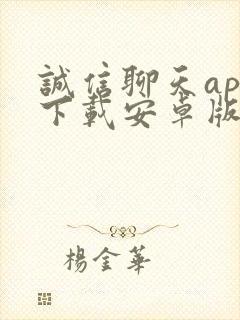 誠信聊天ap
下載安卓版
楊金華